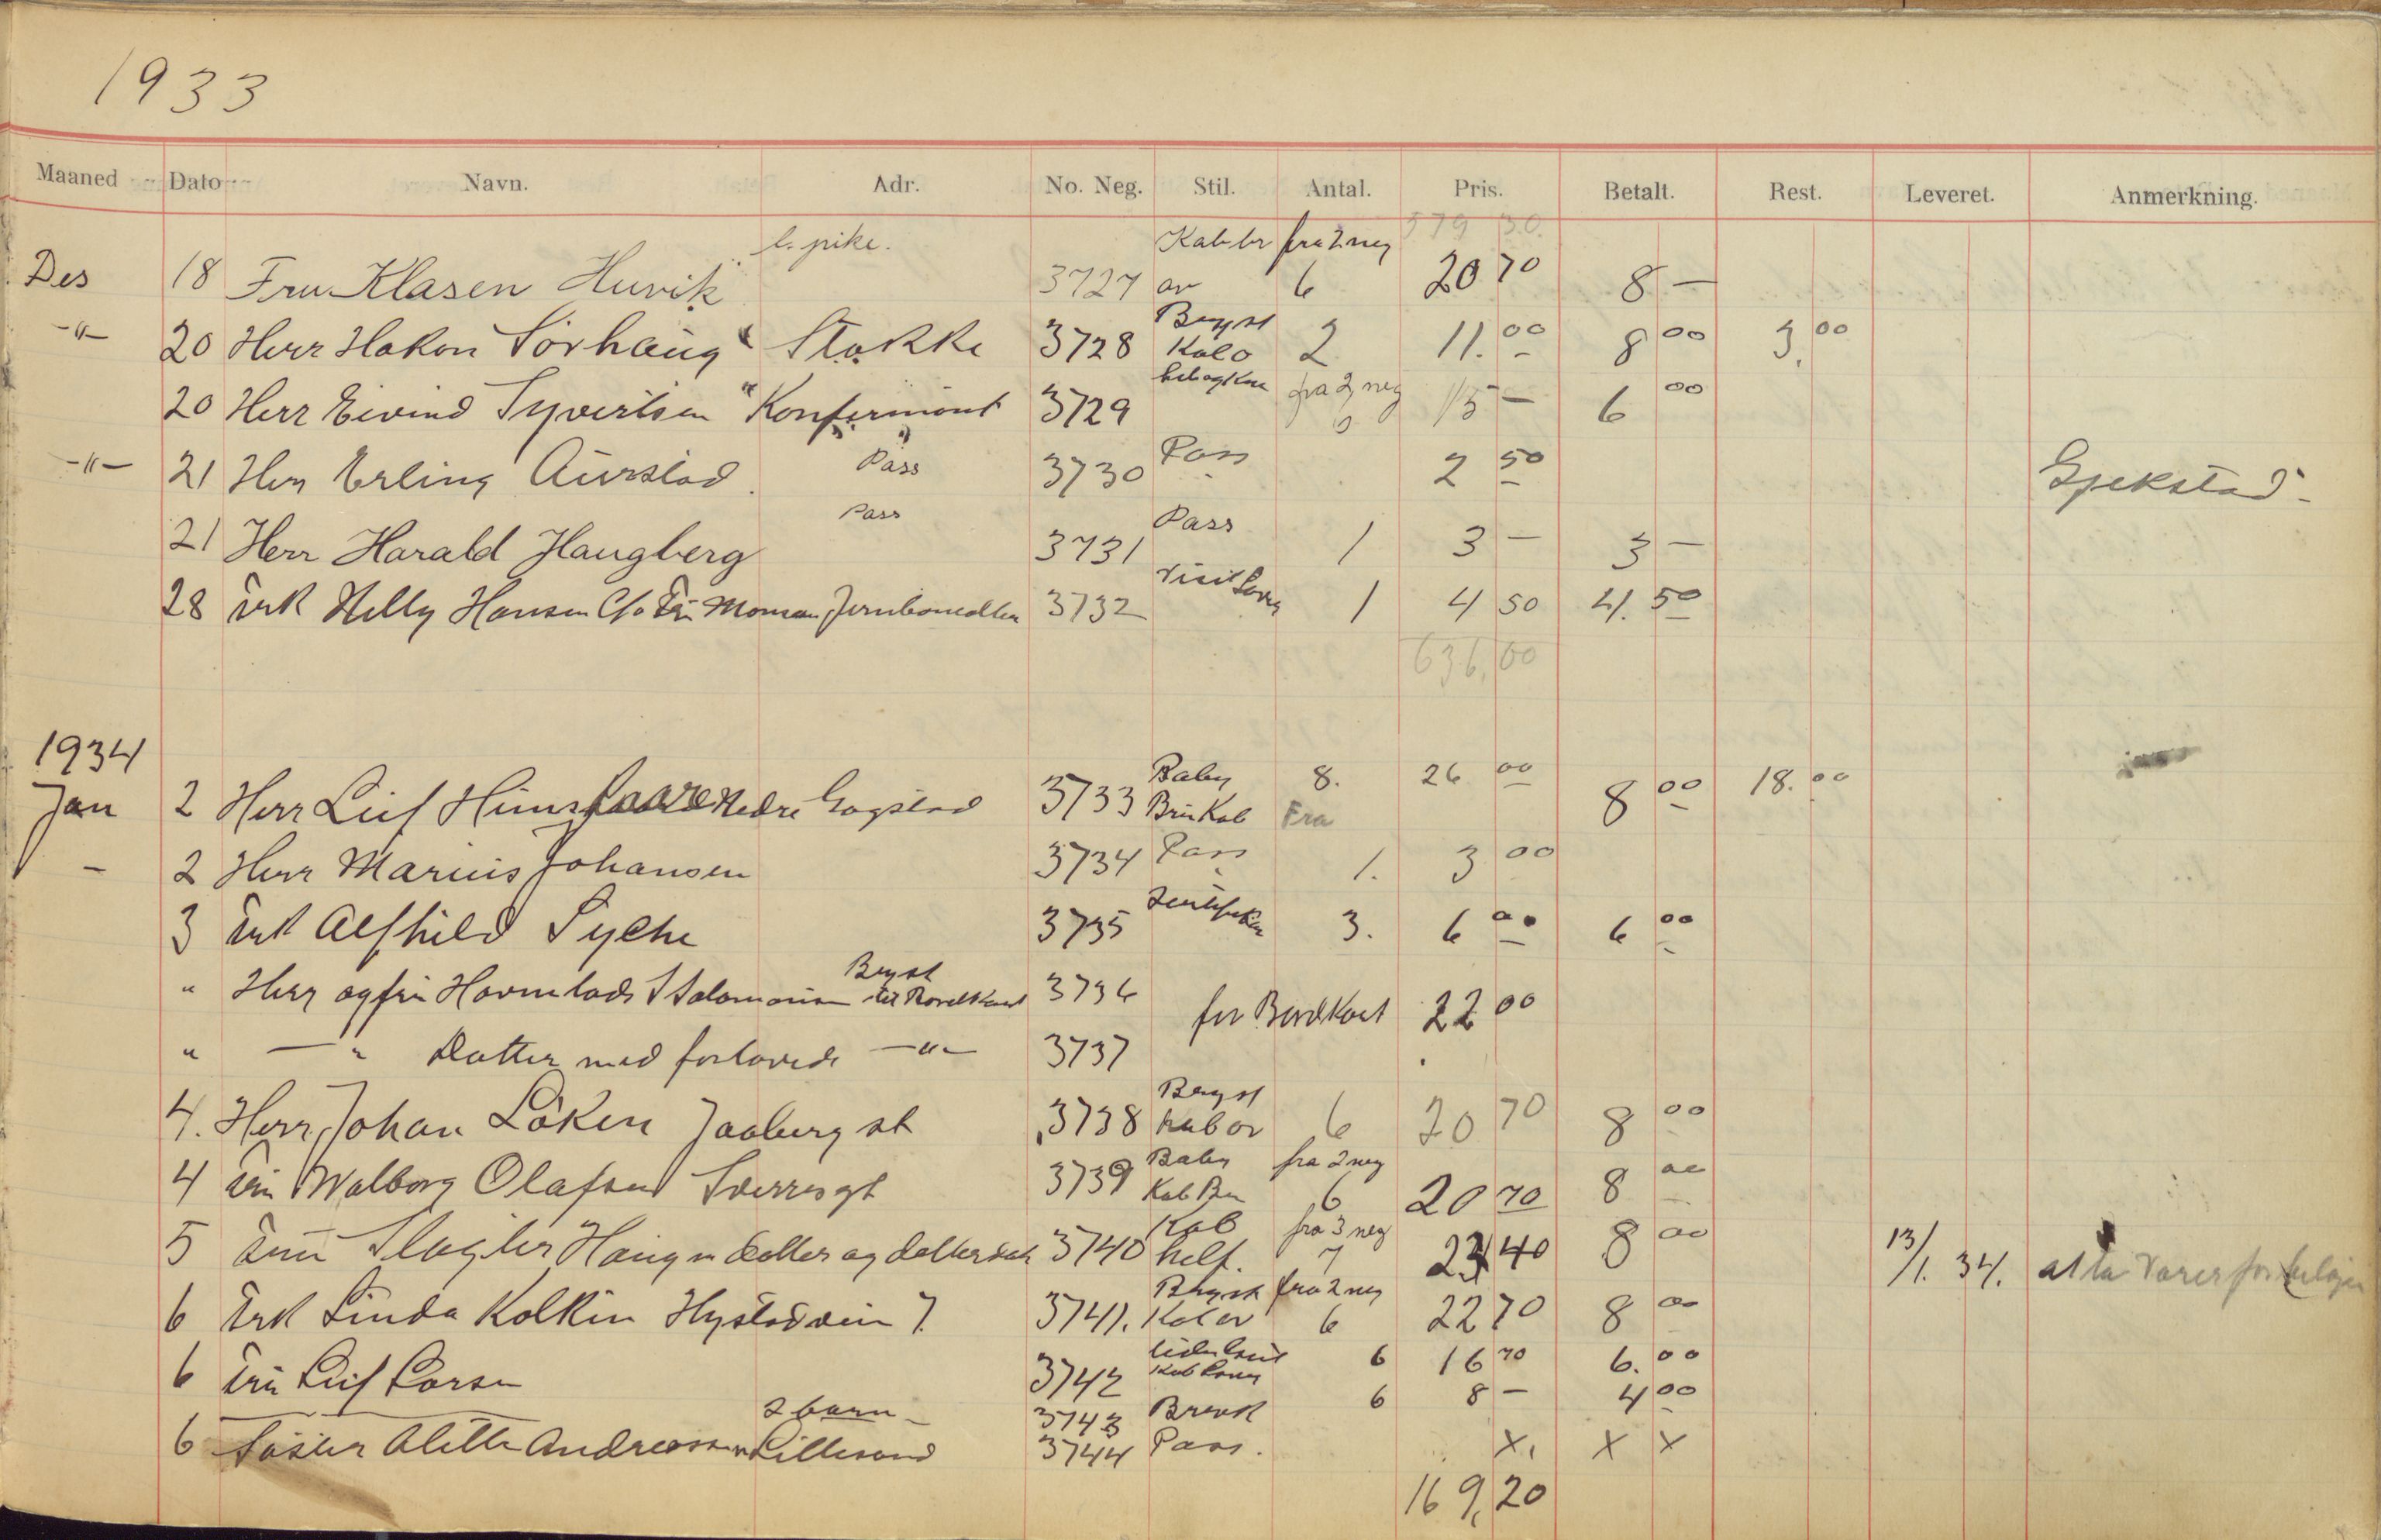 1933
Maaned Dato Navn. Adr. No. Neg. Stil. Antal. Pris. Betalt. Rest. Leveret. Anmerkning.
579 30.
l. pike. Kab br fra 2 neg
Des 18 Fru Klasen Huvik 3727 av 6 20 70 8 —
-"- 20 Herr Hakon Sörhaug Stokke 3728 Bryst Kab 2 11.00 8 00 3.00
20 Herr Eivind Syvertsen Konfirmant 3729 hel og Kne fra 2 neg 15 — 6 00
-"- 21 Herr Erling Aurstad Pass 3730 Pass 2 50 Gjekstad
21 Herr Harald Haugberg Pass 3731 Pass 1 3 — 3 —
28 Frk Helly Hansen C/o Fru Monsen Jernbanealleen 3732 Visit 1 4 50 4.50
636,00
1934
Jan 2 Herr Leif Nedre Gogstad 3733 Baby Kab 8. Fra 26 00 8 00 18.00
- 2 Herr Marius Johansen 3734 Pass 1. 3 00
3 Frk Alfhild Syche 3735 3. 6 00 6 00
" Herr og fru Salomonsen Bryst til Bordkort 3736 for Bordkort 22 00
" — " Datter med forlovede —"— 3737
4. Herr Johan Löken Jaaberg st 3738 Bryst Kab ov 6 20 70 8 00
4 Fru Walborg Olafsen Sverresgt 3739 Baby Kab fra 2 neg 6 20 70 8 00
5 Fru Slagter Haug m datter og datterdat 3740 Kab helf. fra 3 neg 7 23 40 8 00 13/1. 34. at ta varer for
6 Frk Linda Kolkin Hystadvein 7. 3741. Bryst Kab ov fra 2 neg 6 22 70 8 00
6 Fru Leif Larsen 3742 Kab 6 16 70 6.00
2 barn 3743 Brevk 6 8 — 4 00
6 Söster Alette Andreassen Lillesand 3744 Pass. x, x x
169,20